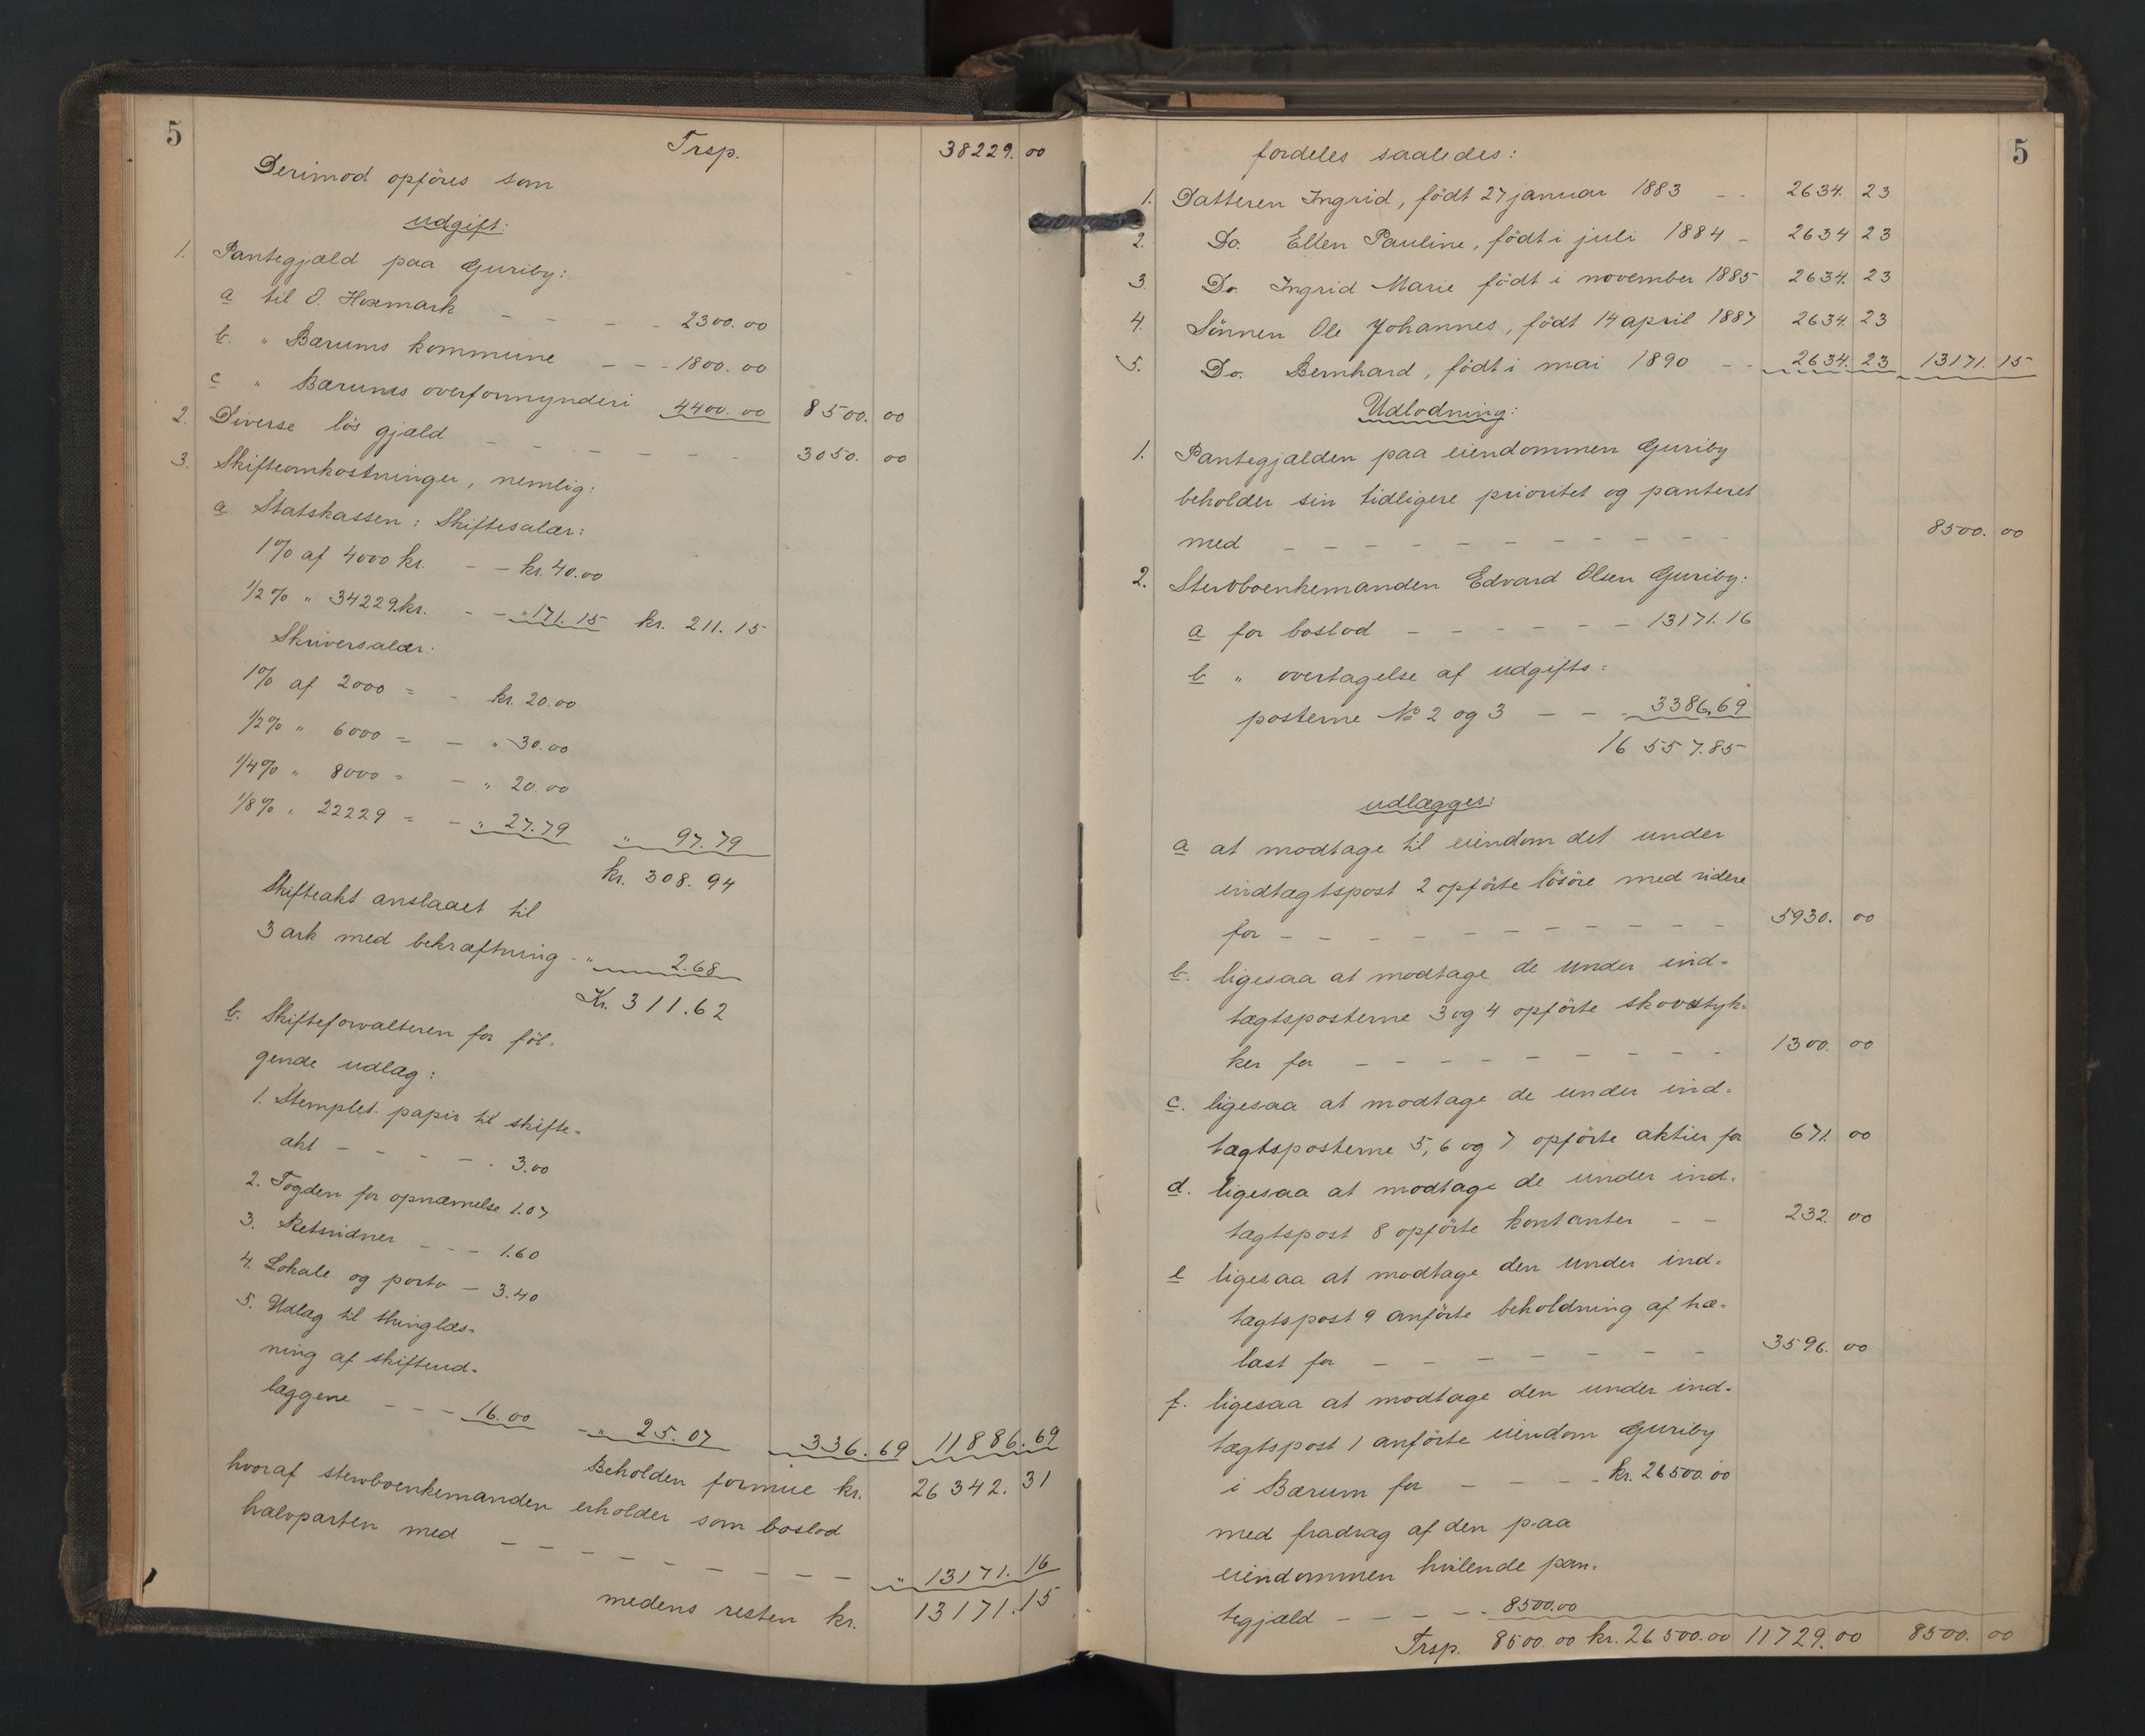 5
Trsp. 38229. 00
Derimod opföres som
udgift:
1. Pantegjæld paa Guriby:
a til O. Hoxmark - - - - 2300.00
b. " Bærums kommune - - - 1800.00
c " Bærums overformynderi 4400.00 8500. 00
2. Diverse lös gjæld - - - - - - 3050. 00
3. Skifteomkostninger, nemlig:
a. Statskassen: Skiftesalær:
1% af 4000 kr. - - kr. 40.00
1/2% " 34229 kr. - - " 171.15 kr. 211.15
Skriversalær:
1% af 2000 = - kr. 20.00
1/2% " 6000 = - " 30.00
1/4% " 8000 = - " 20.00
1/8% " 22229 = - " 27.79 " 97.79
kr. 308.94
Skifteakt anslaaet til
3 ark med bekræftning - " 2.68
Kr. 311.62
b. Skifteforvalteren for föl-
gende udlæg:
1. Stemplet papir til skifte-
akt - - - - - 3.00
2. Fogden for opnævnelse 1.07
3. Retsvidner - - - 1.60
4. Lokale og porto - 3.40
5. Udlæg til thinglæs-
ning af skifteud-
læggene - - - 16.00 - " 25.07 336.69 11886.69
Beholden formue kr. 26342.31
hvoraf stervboenkemanden erholder som boslod
halvparten med - - - - - - - - - " 13171.16
medens resten kr. 13171.15
5
fordeles saaledes:
1. Datteren Ingrid, födt 27 januar 1883 - - 2634. 23
2. Do. Ellen Pauline, födt i juli 1884 - 2634 23
3. Do. Ingrid Marie födt i november 1885 2634. 23
4. Sönnen Ole Johannes, födt 14 april 1887 2634. 23
5. Do. Bernhard, födt i mai 1890 - - 2634. 23 13171. 15
Udlodning:
1. Pantegjælden paa eiendommen Guriby
beholder sin tidligere prioritet og panteret
med - - - - - - - - - - - 8500. 00
2. Stervboenkemanden Edvard Olsen Guriby:
a for boslod - - - - - - 13171.16
b " overtagelse af udgifts=
posterne No 2 og 3 - - - 3386,69
16 557.85
udlægges:
a at modtage til eiendom det under
indtægtspost 2 opförte lösöre med videre
for - - - - - - - - - - - 5930. 00
b. ligesaa at modtage de under ind-
tægtsposterne 3 og 4 opförte skovstyk-
ker for - - - - - - - - - 1300. 00
c. ligesaa at modtage de under ind-
tægtsposterne 5, 6 og 7 opförte aktier for 671. 00
d. ligesaa at modtage de under ind-
tægtspost 8 opförte kontanter - - 232. 00
e ligesaa at modtage den under ind-
tægtspost 9 anförte beholdning af træ-
last for - - - - - - - - 3596. 00
f. ligesaa at modtage den under ind-
tægtspost 1 anförte eiendom Guriby
i Bærum for - - - - kr. 26500.00
med fradrag af den paa
eiendommen hvilende pan-
tegjæld - - - - - 8500.00
Trsp. 8500.00 kr. 26500.00 11729.00 8500. 00